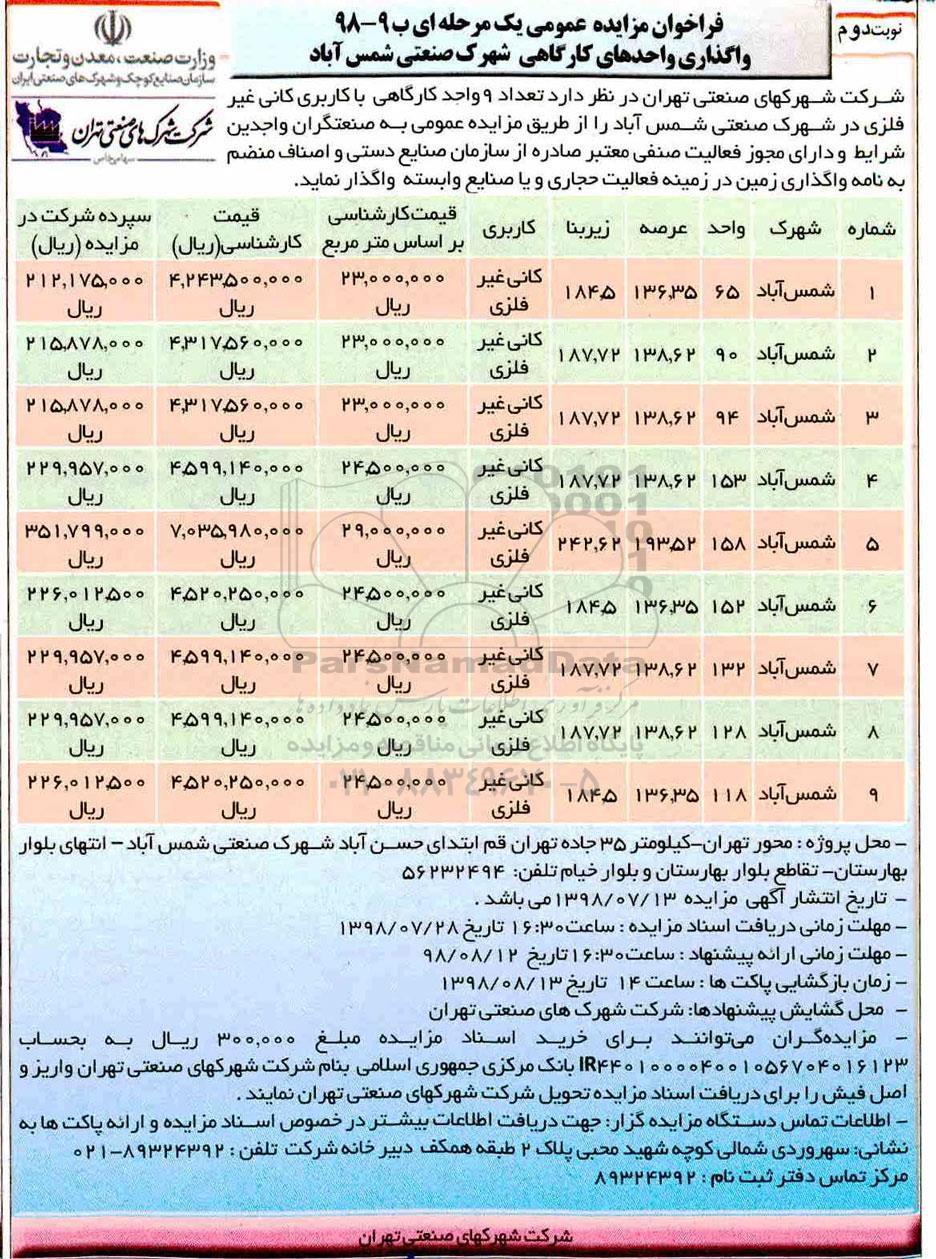 نوبت دوم
فراخوان مزایده عمومی یک مرحله ای ب ۹-۹۸
واگذاری واحدهای کارگاهی شهرک صنعتی شمس آباد
وزارت صنعت، معدن و تجارت
سازمان صنایع کوچک و شهرک های صنعتی ایران
شرکت شهرک های صنعتی تهران
سهامی خاص
شرکت شهرکهای صنعتی تهران در نظر دارد تعداد ۹ واحد کارگاهی با کاربری کانی غیر
فلزی در شهرک صنعتی شمس آباد را از طریق مزایده عمومی به صنعتگران واجدین
شرایط و دارای مجوز فعالیت صنفی معتبر صادره از سازمان صنایع دستی و اصناف منضم
به نامه واگذاری زمین در زمینه فعالیت حجاری و یا صنایع وابسته واگذار نماید.
شماره شهرک واحد عرصه زیربنا کاربری قیمت کارشناسی بر اساس متر مربع قیمت کارشناسی(ریال) سپرده شرکت در مزایده (ریال)
۱ شمس آباد ۶۵ ۱۳۶,۳۵ ۱۸۴,۵ کانی غیر فلزی ۲۳,۰۰۰,۰۰۰ ریال ۴,۲۴۳,۵۰۰,۰۰۰ ریال ۲۱۲,۱۷۵,۰۰۰ ریال
۲ شمس آباد ۹۰ ۱۳۸,۶۲ ۱۸۷,۷۲ کانی غیر فلزی ۲۳,۰۰۰,۰۰۰ ریال ۴,۳۱۷,۵۶۰,۰۰۰ ریال ۲۱۵,۸۷۸,۰۰۰ ریال
۳ شمس آباد ۹۴ ۱۳۸,۶۲ ۱۸۷,۷۲ کانی غیر فلزی ۲۳,۰۰۰,۰۰۰ ریال ۴,۳۱۷,۵۶۰,۰۰۰ ریال ۲۱۵,۸۷۸,۰۰۰ ریال
۴ شمس آباد ۱۵۳ ۱۳۸,۶۲ ۱۸۷,۷۲ کانی غیر فلزی ۲۴,۵۰۰,۰۰۰ ریال ۴,۵۹۹,۱۴۰,۰۰۰ ریال ۲۲۹,۹۵۷,۰۰۰ ریال
۵ شمس آباد ۱۵۸ ۱۹۳,۵۲ ۲۴۲,۶۲ کانی غیر فلزی ۲۹,۰۰۰,۰۰۰ ریال ۷,۰۳۵,۹۸۰,۰۰۰ ریال ۳۵۱,۷۹۹,۰۰۰ ریال
۶ شمس آباد ۱۵۲ ۱۳۶,۳۵ ۱۸۴,۵ کانی غیر فلزی ۲۴,۵۰۰,۰۰۰ ریال ۴,۵۲۰,۲۵۰,۰۰۰ ریال ۲۲۶,۰۱۲,۵۰۰ ریال
۷ شمس آباد ۱۳۲ ۱۳۸,۶۲ ۱۸۷,۷۲ کانی غیر فلزی ۲۴,۵۰۰,۰۰۰ ریال ۴,۵۹۹,۱۴۰,۰۰۰ ریال ۲۲۹,۹۵۷,۰۰۰ ریال
۸ شمس آباد ۱۲۸ ۱۳۸,۶۲ ۱۸۷,۷۲ کانی غیر فلزی ۲۴,۵۰۰,۰۰۰ ریال ۴,۵۹۹,۱۴۰,۰۰۰ ریال ۲۲۹,۹۵۷,۰۰۰ ریال
۹ شمس آباد ۱۱۸ ۱۳۶,۳۵ ۱۸۴,۵ کانی غیر فلزی ۲۴,۵۰۰,۰۰۰ ریال ۴,۵۲۰,۲۵۰,۰۰۰ ریال ۲۲۶,۰۱۲,۵۰۰ ریال
ParsNamadData
مرکز فرآوری اطلاعات پارس نماد داده ها
پایگاه اطلاع رسانی مناقصه و مزایده
۰۲۱-۸۸۳۴۹۶۷۰-۵
– محل پروژه : محور تهران-کیلومتر ۳۵ جاده تهران قم ابتدای حسن آباد شهرک صنعتی شمس آباد – انتهای بلوار
بهارستان- تقاطع بلوار بهارستان و بلوار خیام تلفن: ۵۶۲۳۲۴۹۴
– تاریخ انتشار آگهی مزایده ۱۳۹۸/۰۷/۱۳ می باشد .
– مهلت زمانی دریافت اسناد مزایده : ساعت ۱۶:۳۰ تاریخ ۱۳۹۸/۰۷/۲۸
– مهلت زمانی ارائه پیشنهاد : ساعت ۱۶:۳۰ تاریخ ۹۸/۰۸/۱۲
– زمان بازگشایی پاکت ها : ساعت ۱۴ تاریخ ۱۳۹۸/۰۸/۱۳
– محل گشایش پیشنهادها: شرکت شهرک های صنعتی تهران
– مزایده‌گران می‌توانند برای خرید اسناد مزایده مبلغ ۳۰۰,۰۰۰ ریال به بحساب
IR۴۴۰۱۰۰۰۰۴۰۰۱۰۵۶۷۰۴۰۱۶۱۲۳ بانک مرکزی جمهوری اسلامی بنام شرکت شهرکهای صنعتی تهران واریز و
اصل فیش را برای دریافت اسناد مزایده تحویل شرکت شهرکهای صنعتی تهران نمایند .
– اطلاعات تماس دستگاه مزایده گزار: جهت دریافت اطلاعات بیشتر در خصوص اسناد مزایده و ارائه پاکت ها به
نشانی: سهروردی شمالی کوچه شهید محبی پلاک ۲ طبقه همکف دبیر خانه شرکت تلفن : ۸۹۳۲۴۳۹۲-۰۲۱
مرکز تماس دفتر ثبت نام : ۸۹۳۲۴۳۹۲
شرکت شهرکهای صنعتی تهران